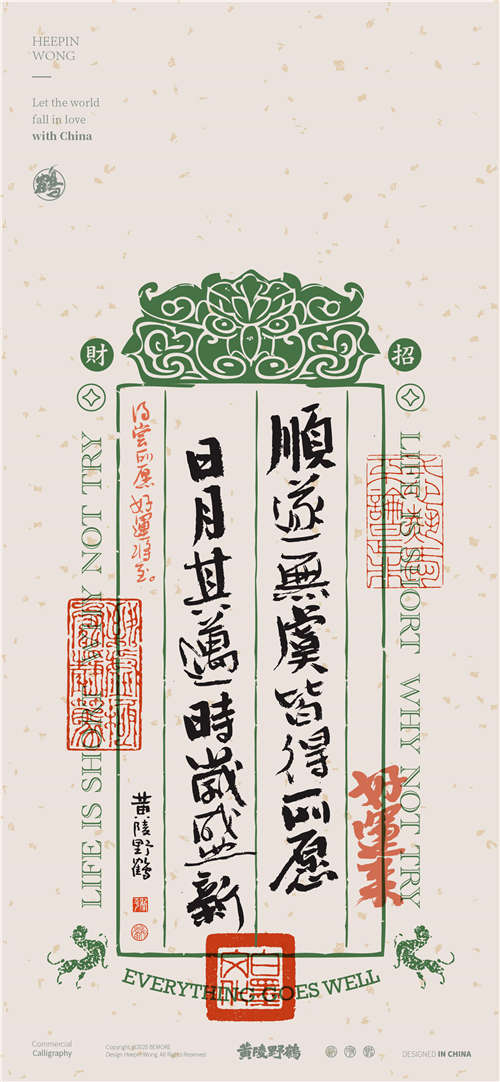 HEEPIN
WONG
Let the world
fall in love
with China
鶴
財
招
順遂無虞皆得所愿
日月其邁時歲盛新
得偿所愿 好運将至。
黄陵野鶴
LIFE IS SHORT WHY NOT TRY
LIFE IS SHORT WHY NOT TRY
好運来
EVERYTHING GOES WELL
Commercial
Calligraphy
Copyright ©2025 BEMORE
Design Heepin Wong. All Rights Reserved
黄陵野鶴
DESIGNED IN CHINA